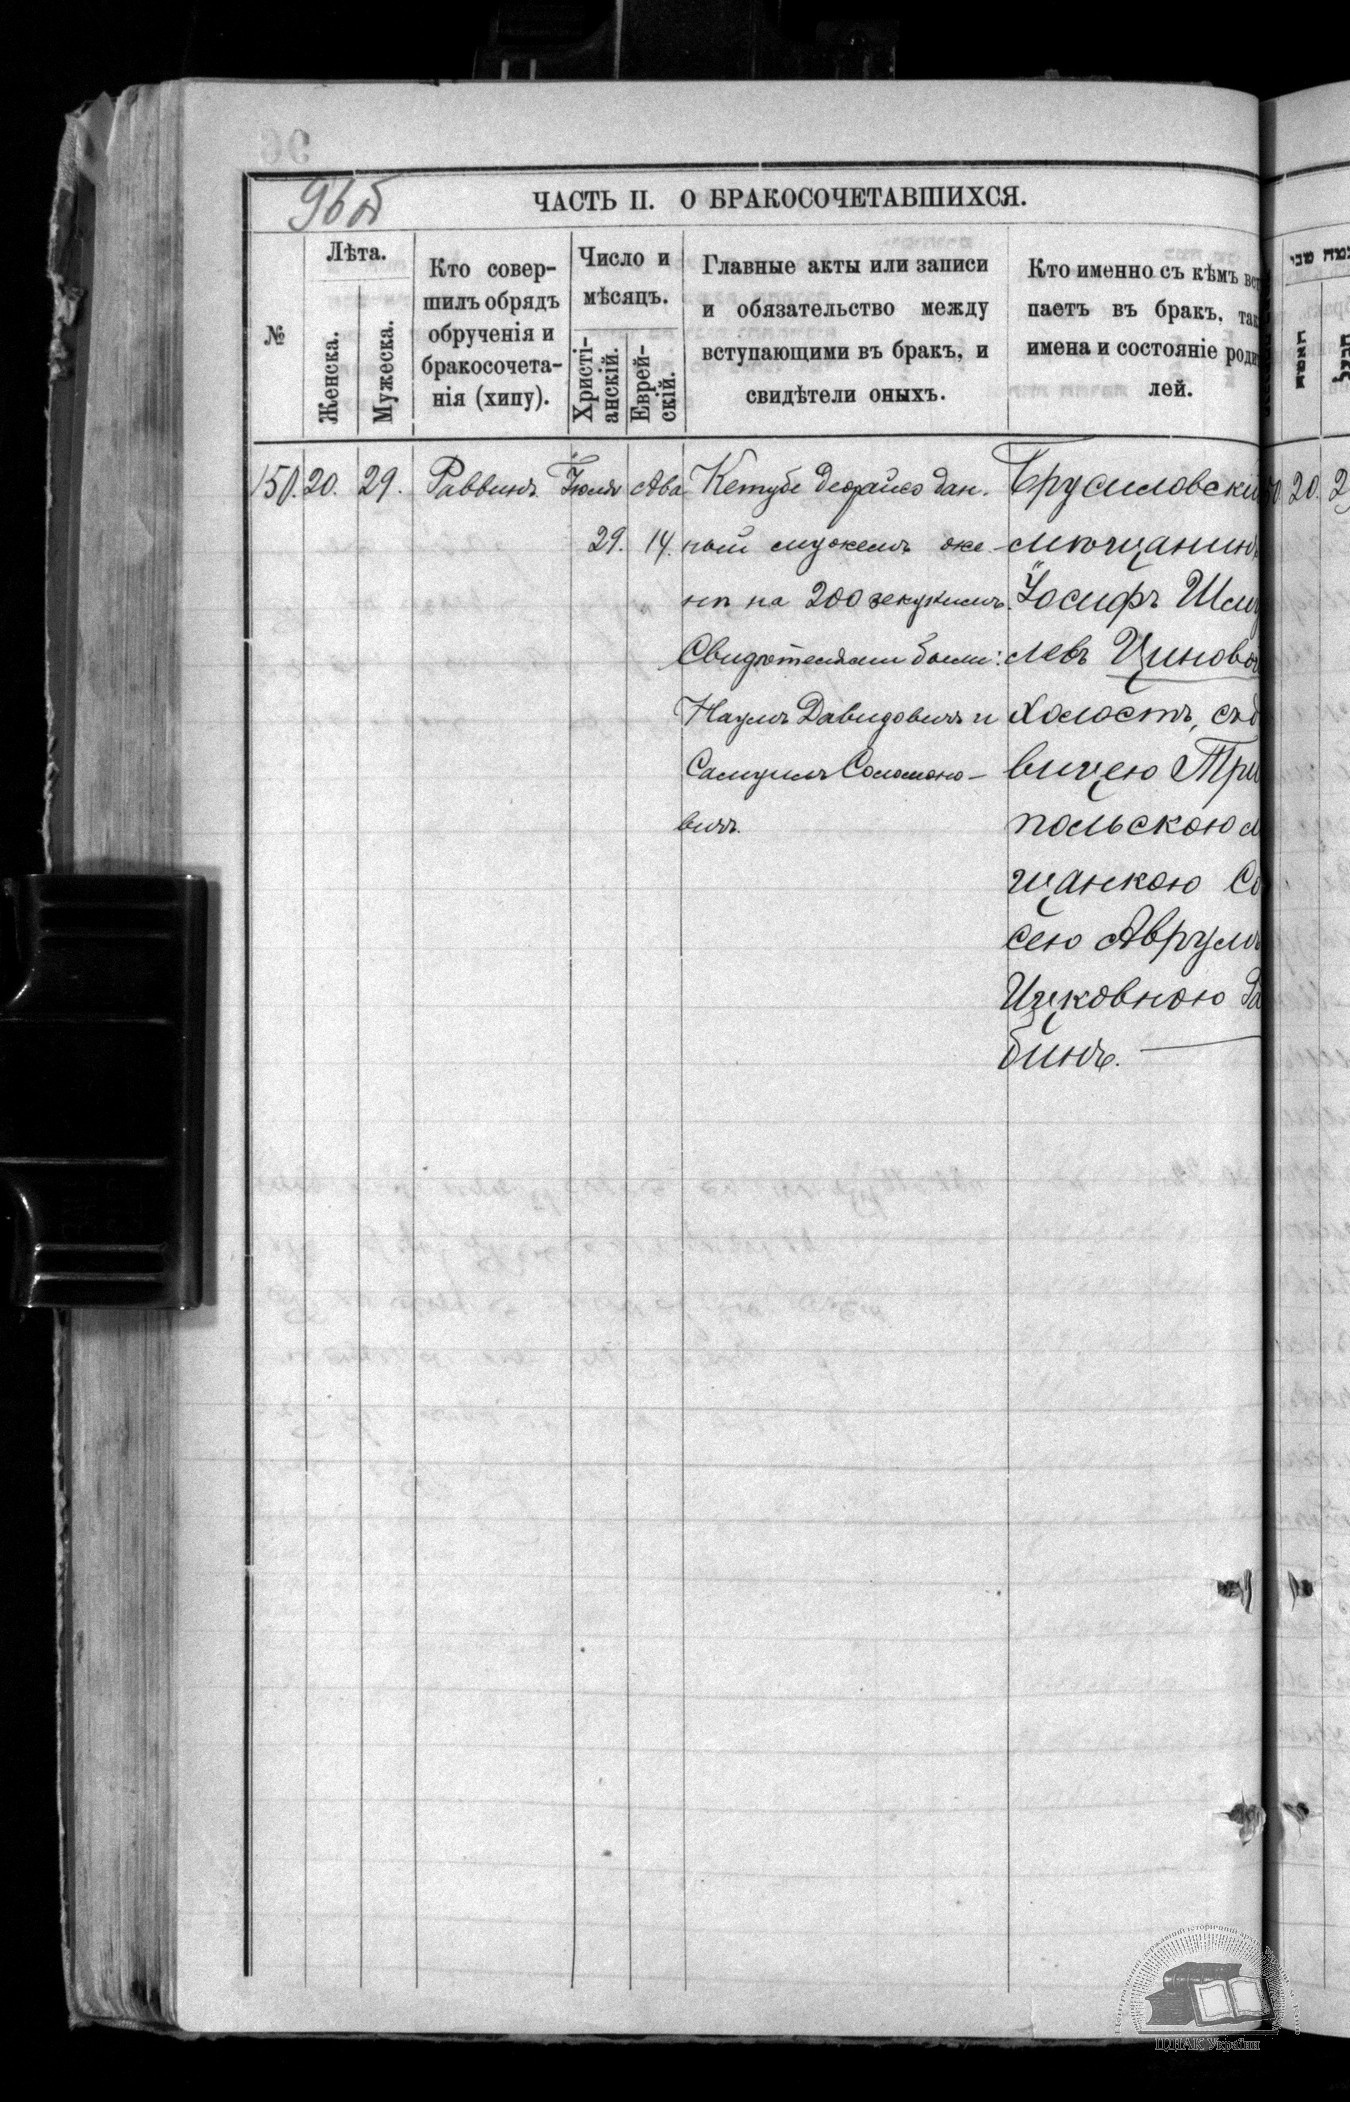 96 об
ЧАСТЬ II. О БРАКОСОЧЕТАВШИХСЯ.
№
Лѣта.
Женска.
Мужеска.
Кто совер-
шилъ обрядъ
обрученія и
бракосочета-
нія (хипу).
Число и
мѣсяцъ.
Христі-
анскій.
Еврей-
скій.
Главные акты или записи
и обязательство между
вступающими въ бракъ, и
свидѣтели оныхъ.
Кто именно съ кѣмъ вст
паетъ въ бракъ, так
имена и состояніе роди
лей.
150. 20. 29. Раввинъ Іюля 29. Ава 14.
Кетубе деорайсо дан-
ный мужемъ же-
нѣ на 200 зекукимъ.
Свидѣтелями были:
Наумъ Давидовичъ и
Самуилъ Соломоно-
вичъ.
Брусиловскі
мѣщанинъ
Іосифъ Шму
левъ Циново
холостъ, съ д
вицею Три
польскою м
щанкою Со
сею Аврумъ
Ицковною Ра
бинъ.
20. 2
ЦДІАК України